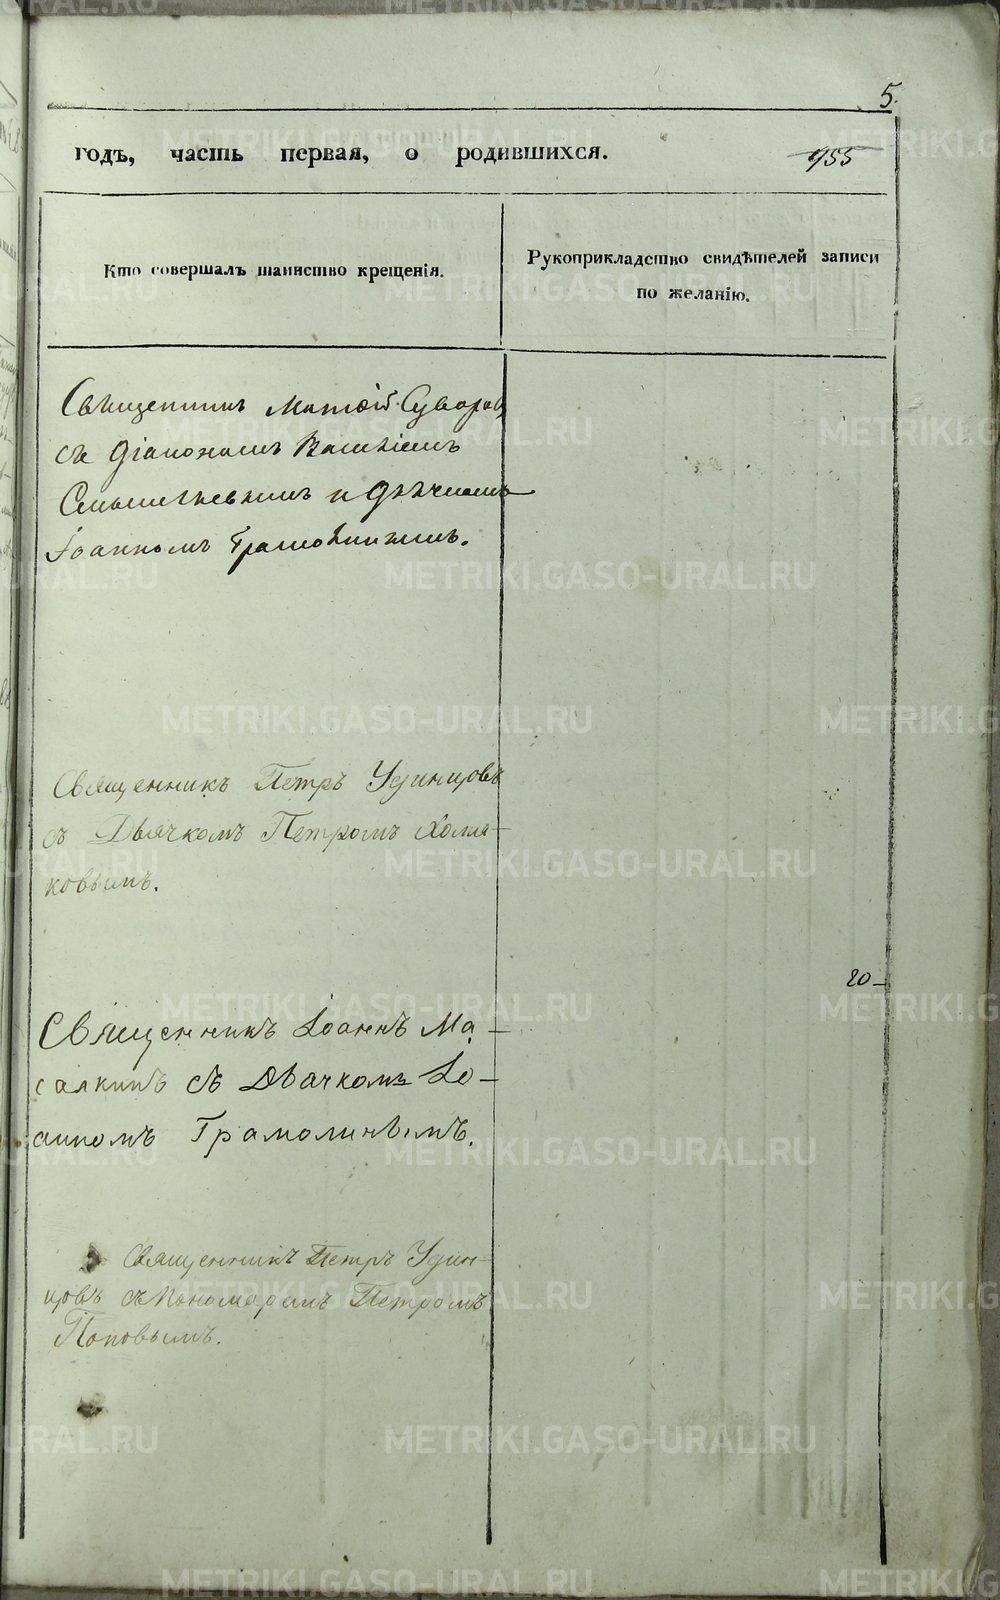 5.
годъ, часть первая, о родившихся.
955
Кто совершалъ таинство крещенія.
Рукоприкладство свидѣтелей записи
по желанію.
Священникъ Матѳій Суворовъ
съ Діакономъ Василіемъ
и Дьячкомъ
Іоанномъ Грамолинымъ.
Священникъ Петръ Удинцовъ
съ Дьячкомъ Петромъ Холмо-
ковымъ.
20
Священникъ Іоаннъ Ма-
салкинъ съ Дьячкомъ Іо-
анномъ Грамолинымъ.
Священникъ Петръ Удин-
цовъ съ Пономаремъ Петромъ
Поповымъ.
METRIKI.GASO-URAL.RU